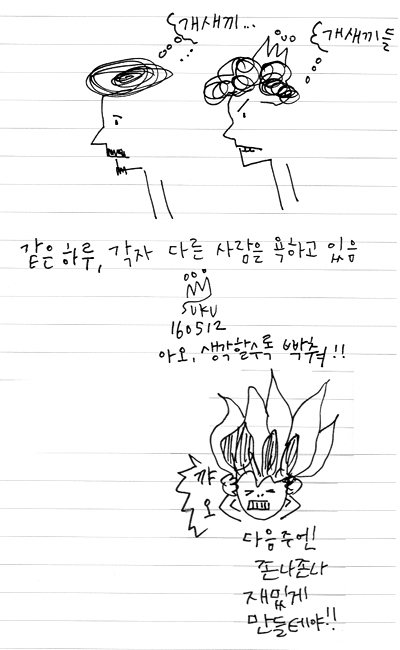 개새끼...
개새끼들
같은 하루, 각자 다른 사람을 욕하고 있음
SUKU
160512
아오, 생각할수록 빡춰!!
꺄
오
다음주엔!
존나존나
재밌게
만들테야!!